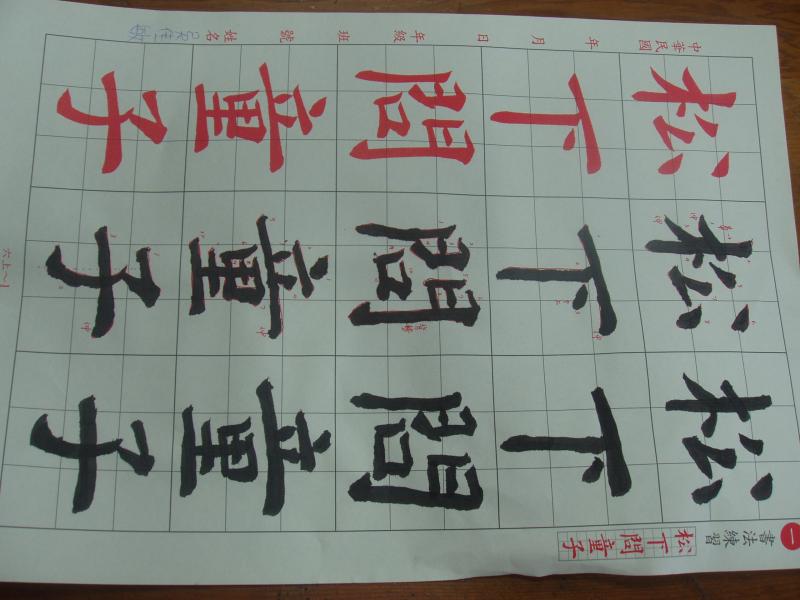 一 書法練習 松下問童子
松下問童子
松下問童子
松下問童子
中華民國 年 月 日 年級 班 號 姓名
六上~1